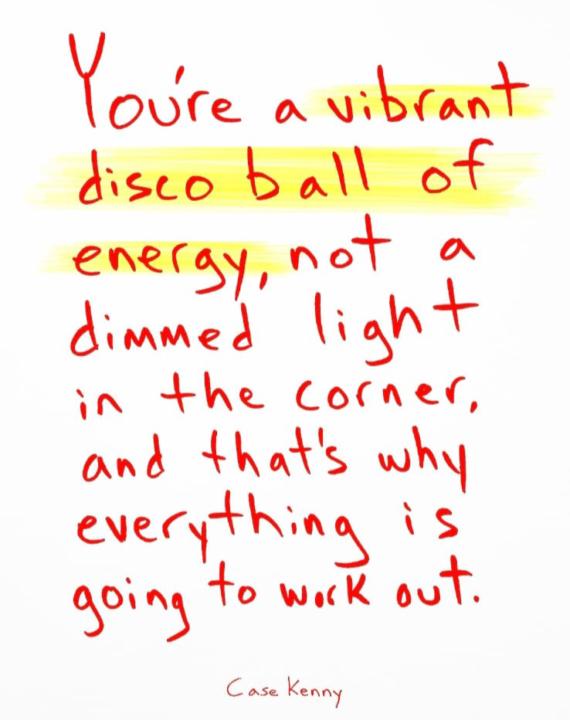 You're a vibrant
disco ball of
energy, not a
dimmed light
in the corner,
and that's why
everything is
going to work out.
Case Kenny